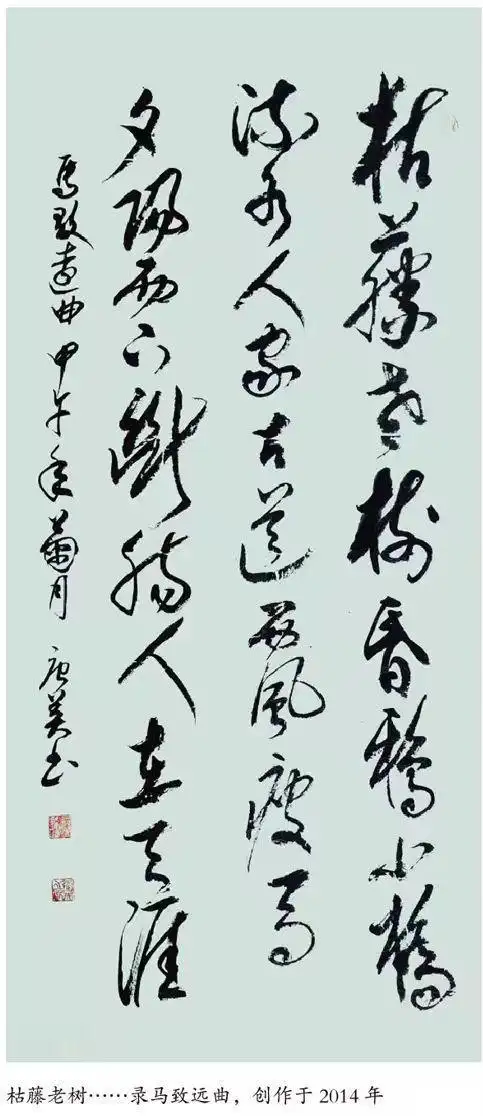 枯藤老樹昏鴉小橋
流水人家古道西風瘦馬
夕陽西下斷腸人在天涯
馬致遠曲 甲午年蘭月 书
枯藤老树……录马致远曲，创作于 2014 年